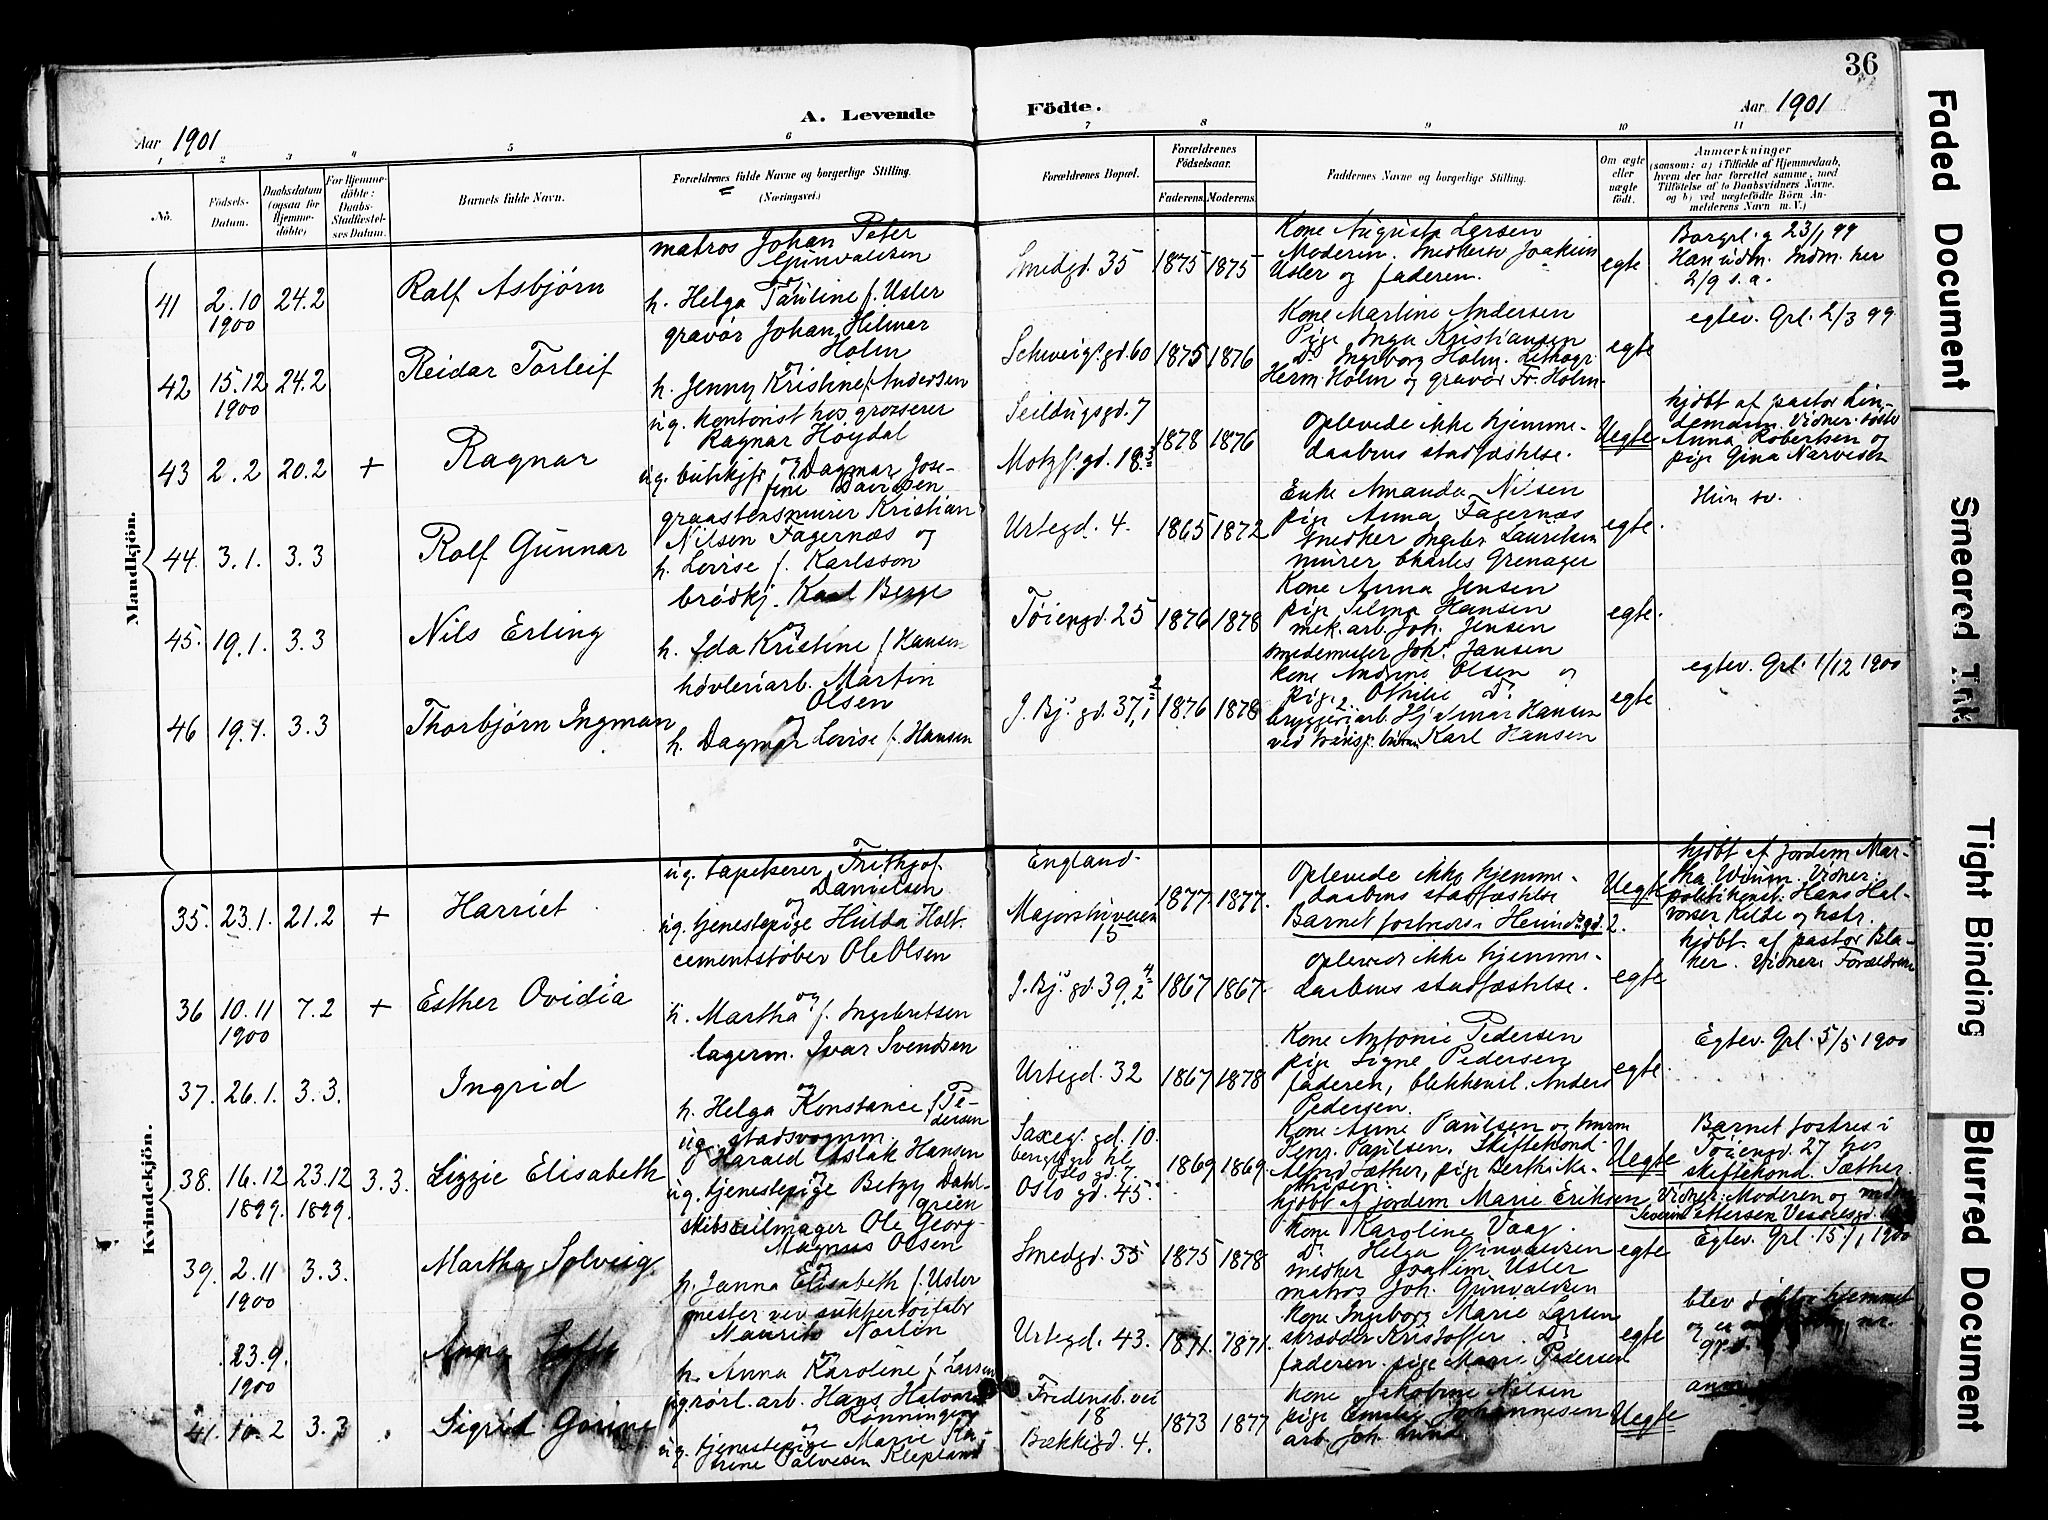 36
A. Levende Födte.
Aar 1901
Aar 1901
1 2 3 4 5 6 7 8 9 10 11
No.
Födsels-Datum.
Daabsdatum (ogsaa for Hjemme-döbte)
For Hjemme-döbte: Daabs-Stadfæstel-ses Datum.
Barnets fulde Navn.
Forældrenes fulde Navne og borgerlige Stilling.
(Næringsvei.)
Forældrenes Bopæl.
Forældrenes Födselsaar.
Faderens. Moderens.
Faddernes Navne og borgerlige Stilling.
Om ægte eller uægte födt.
Anmærkninger
(saasom: a) i Tilfælde af Hjemmedaab,
hvem der har forrettet samme, med
Tilføielse af to Daabsvidners Navne,
og b) ved uægtefödte Börn An-
melderens Navn m. V.)
Mandkjön.
41 2.10 1900 24.2 Ralf Asbjørn
matros Johan Peter
Grinvaldsen
og
h. Helga Pauline f. Usler
Smedgd. 35 1875 1875
Kone Augusta Larsen
Moderen. Snedker Joakim
Usler og faderen.
egte
Borgrl. 23/1 99
Han udm. Indm. her
2/9 s.a.
42 15.12 1900 24.2 Reidar Torleif
gravør Johan Helmer
Holm
og
h. Jenny Kristine f. Andersen
Schweigs.gd. 60 1875 1876
Kone Martine Andersen
Pige Inga Kristiansen
Do Ingeborg Holm. Lithogr.
Herm. Holm og gravør Fr. Holm.
egte
egtev. Grl. 2/3 99
43 2.2 20.2 + Ragnar
ug. kontorist hos grosserer
Ragnar Høydal
og
ug. butikjfr. Dagmar Jose-
fine Davidsen
Seildugsgd. 7
Motzf.gd. 18.3 1878 1876
Oplevede ikke hjemme-
daabens stadfæstelse.
Uegte
hjdbt af pastor Lin-
deman. Vidner:
Anna Robertsen og
pige Gina Narvesen
44. 3.1. 3.3 Rolf Gunnar
graastensmurer Kristian
Nilsen Fagernæs og
h. Lovise f. Karlsson
Urtegd. 4. 1865 1872
Enke Amanda Nilsen
pige Anna Fagernæs
snedker Ingebr. Lauritsen
murer Charles Grenager
egte.
Hun sv.
45. 19.1. 3.3 Nils Erling
brødkj. Karl Berge
og
h. Ida Kristine f. Hansen
Tøiengd. 25 1876 1878
Kone Anna Jensen
pige Selma Hansen
mek. arb. Joh. Jensen
smedemester Johs. Jansen
egte.
46 19.1. 3.3 Thorbjørn Ingman
høvleriarb. Martin
Olsen
og
h. Dagmar Lovise f. Hansen
J. Bj. gd. 37, 1876 1878
kone Andrine Olsen og
pige Othilie Do
bryggeriarb. Hjalmar Hansen
ved transp. Karl Hansen
egte
egtev. Grl. 1/12 1900
Kvindekjön.
35. 23.1. 21.2 + Harriet
ug. tapetserer Frithjof
Danielsen
og
ug. tjenestepige Hulda Holt
England.
Majorstuveien
15 1877. 1877.
Oplevede ikke hjemme-
daabens stadfæstelse
Barnet fostredes i gd. 2.
Uegte
hjdbt af jordem. Mar-
tha Winm. Vidner:
politikonst. Hans Hal-
vorsen Kilde og hstr.
36 10.11 1900 7.2 + Esther Ovidia
cementstøber Ole Olsen
og
h. Martha f. Ingebretsen
J. Bj. gd. 39, 1867 1867.
Oplevede ikke hjemme-
daabens stadfæstelse.
egte
hjdbt. af pastor Bla-
ker. Vidner: Forældrene
37. 26.1. 3.3. Ingrid
lagerm. Ivar Svendsen
og
h. Helga Konstance f. Pe-
dersen
Urtegd. 32 1867 1878
Kone Antonie Pedersen
pige Signe Pedersen
faderen, blikkensl. Anders
Pedersen.
egte.
Egtev. Grl. 5/5 1900
38. 16.12 1899. 23.12 1899. 3.3. Lizzie Elisabeth
ug. stadsvognm.
Harald Aslak Hansen
og
ug. tjenestepige Betzy Dahl-
green
Saxeg. gd. 10.
Oslo gd. 7
Oslo gd. 45. 1869 1869
Kone Anne Paulsen og
Paulsen, Skiftekond.
Sæther, pige
hjdbt af jordem. Marie Eriksen
Uegte
Barnet fostres i
Tøiengd. 27 hos
skiftekond. Sæther.
Vidner: Moderen og
39. 2.11 1900 3.3. Martha Solveig
skibsseilmager Ole Georg
Magnus Olsen
og
h. Janna Elisabeth f. Usler
Smedgd. 35 1875 1878
Kone Karoline Vaag.
Do Helga Grinvaldsen
snedker Joakim Usler
matros Joh. Grinvaldsen
egte
Egtev. Grl. 15/1 1900
23.9. 1900 Anna
mester ved sukkertøifabr.
Maurits Norlin
og
h. Anna Karoline f. Larsen
Urtegd. 43. 1871. 1871.
Kone Ingeborg Marie Larsen
skrædder Kristoffer Do
faderen. pige Marie Pedersen
egte
blev hjemmet
og er
41. 10.2 3.3 Sigrid
ug. rørl. arb. Hans Halvorsen
Rønningen
og
ug. tjenestepige Marie Ka-
trine Salvesen Klepland
Fredensb.vei
18
Bækkegd. 4. 1873 1877
kone Jakobine Nilsen
pige Emilie Johannesen
arb. Joh. Lund
Uegte
Faded Document
Smeared Ink
Tight Binding
Blurred Document